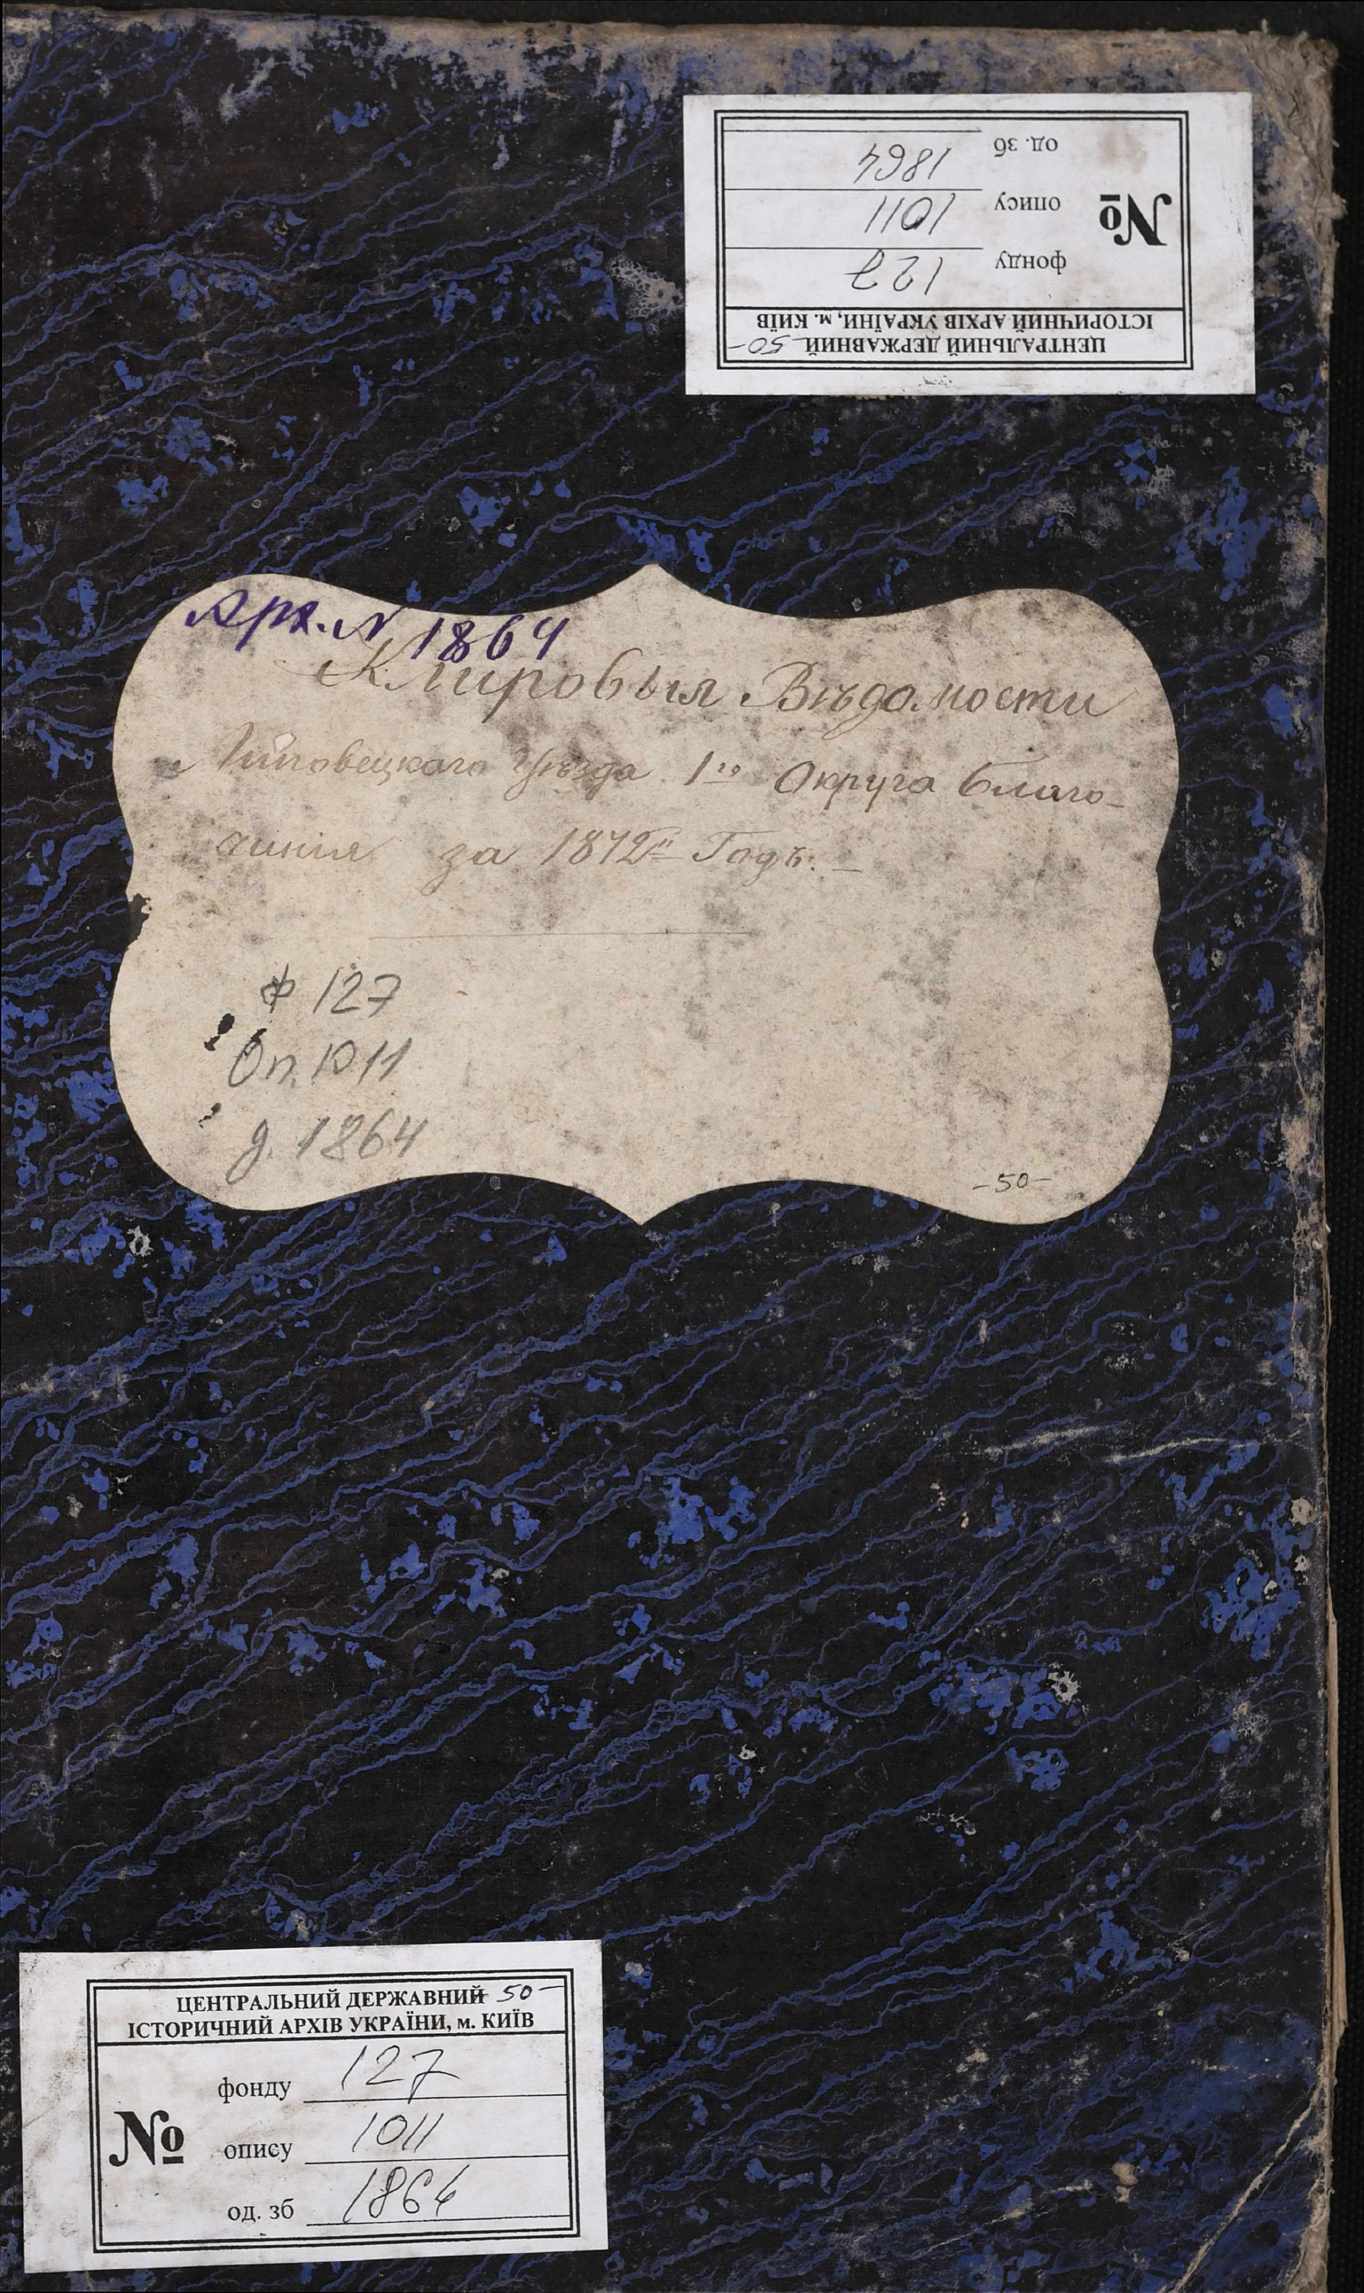 ЦЕНТРАЛЬНИЙ ДЕРЖАВНИЙ -50-
ІСТОРИЧНИЙ АРХІВ УКРАЇНИ, м. КИЇВ
№
фонду 127
опису 1011
од. зб 1864
Арх. N 1864
Клировыя Вѣдомости
Липовецкаго Уѣзда 1го Округа Благо-
чинія за 1872й Годъ. —
ф 127
Оп. 1011
д. 1864
-50-
ЦЕНТРАЛЬНИЙ ДЕРЖАВНИЙ -50-
ІСТОРИЧНИЙ АРХІВ УКРАЇНИ, м. КИЇВ
№
фонду 127
опису 1011
од. зб 1864